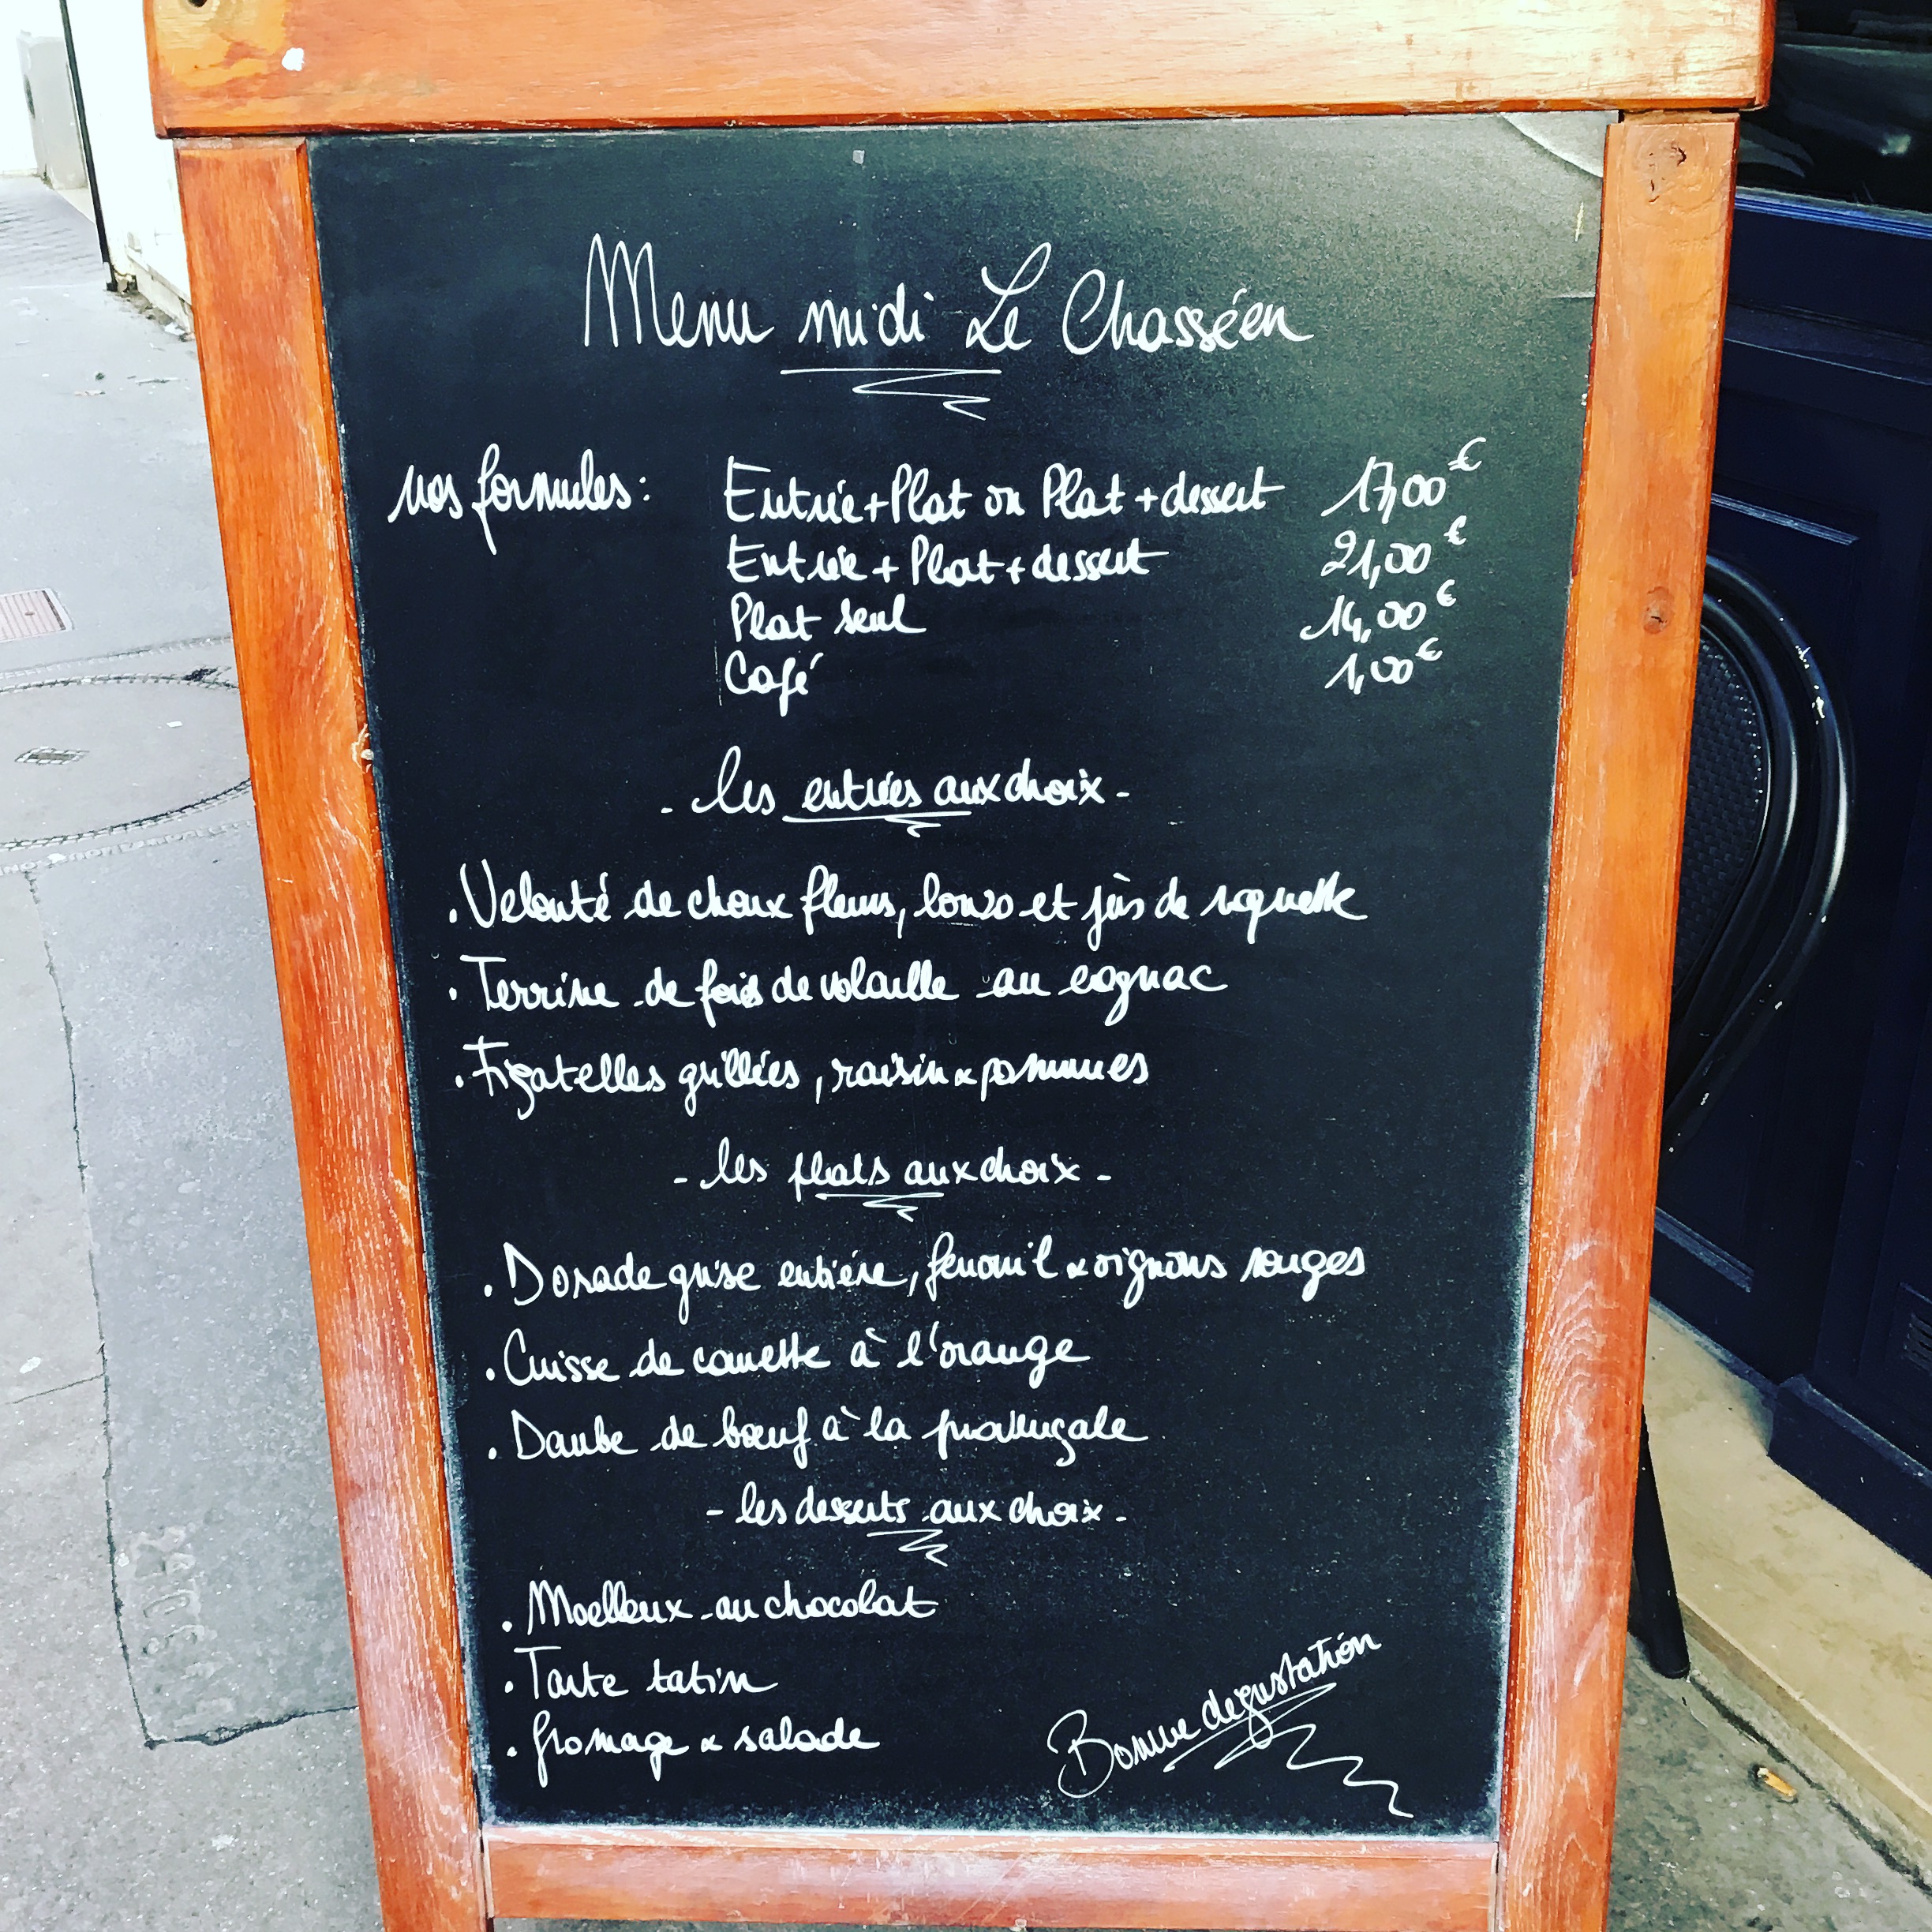 Menu midi Le Chasséen
nos formules : Entrée + Plat ou Plat + dessert 17,00€
Entrée + Plat + dessert 21,00€
Plat seul 14,00€
Café 1,00€
- les entrées aux choix -
. Velouté de choux fleurs, lonzo et jûs de roquette
. Terrine de foies de volaille au cognac
. Figatelles grillées, raisin & pommes
- les plats aux choix -
. Dorade grise entière, fenouil & oignons rouges
. Cuisse de canette à l'orange
. Daube de bœuf à la provençale
- les desserts aux choix -
. Moelleux au chocolat
. Tarte tatin
. fromage & salade
Bonne dégustation